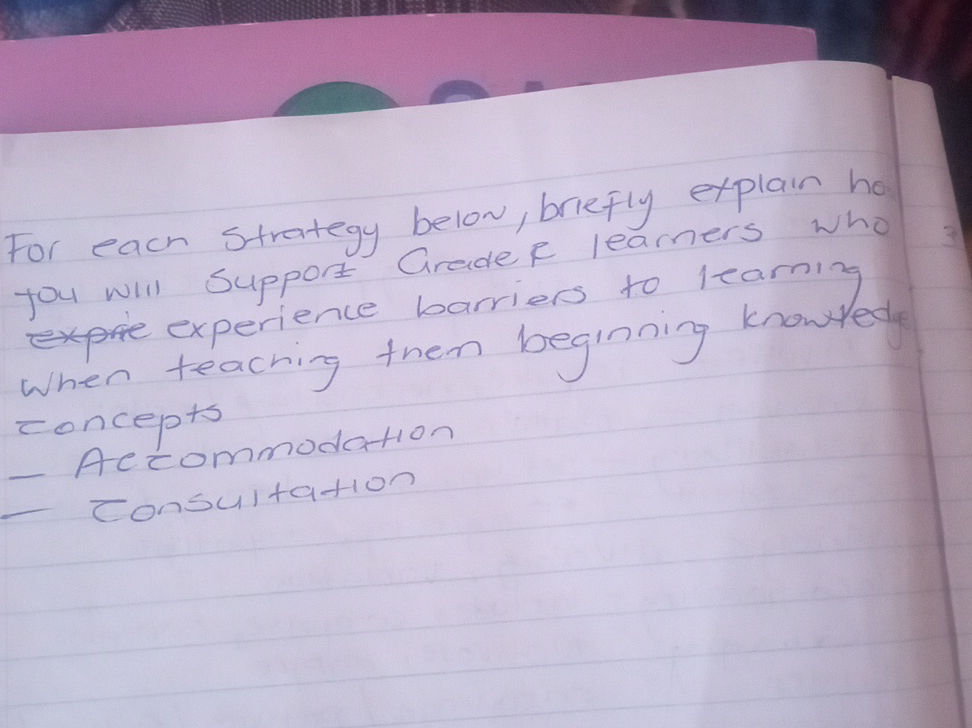 For each Strategy below, briefly explain ho
you will Support Grade R learners who
exprie experience barriers to learning
When teaching them beginning knowledge
concepts
- Accommodation
- Consultation
3